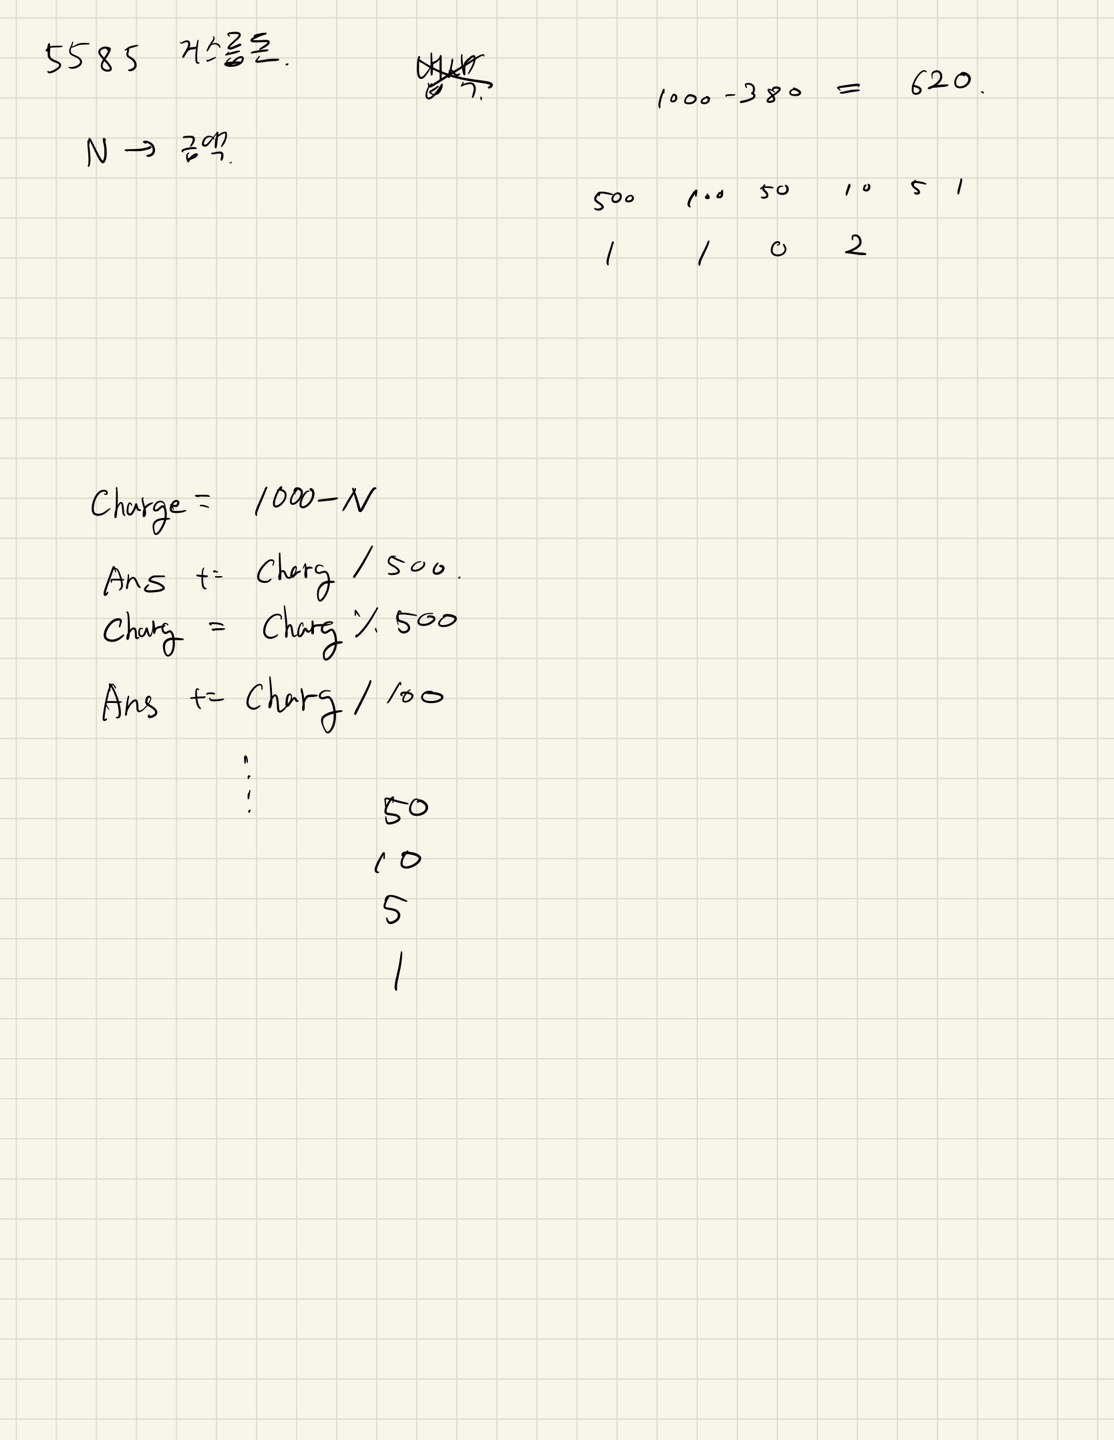 5585 거스름돈.
1000-380 = 620.
N → 금액.
500 100 50 10 5 1
1 1 0 2
Charge = 1000-N
Ans += Charg / 500.
Charg = Charg % 500
Ans += Charg / 100
⋮
50
10
5
1